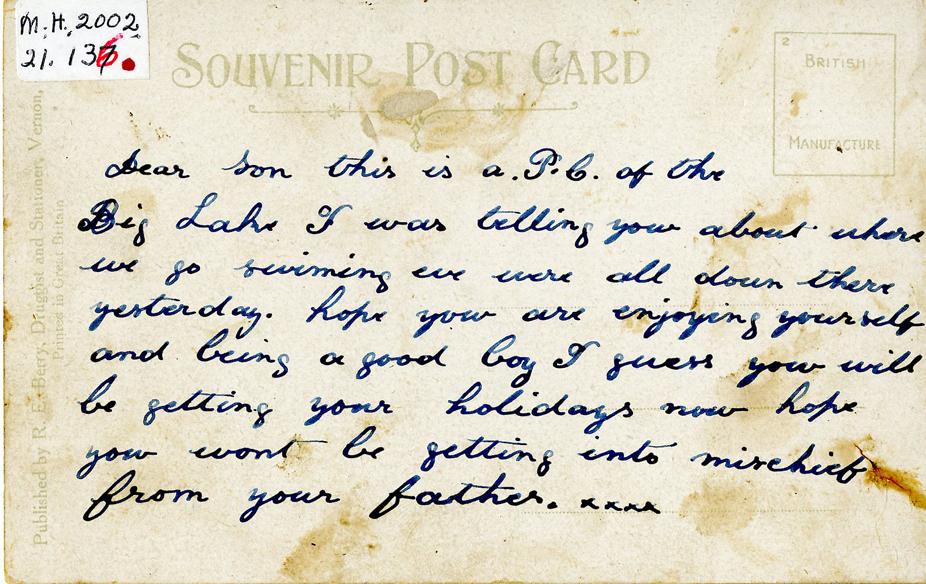 M.H. 2002
21. 136.
SOUVENIR POST CARD
2
BRITISH
MANUFACTURE
Dear son this is a. P.C. of the
Big Lake I was telling you about where
we go swiming we were all down there
yesterday. hope you are enjoying yourself
and being a good boy I guess you will
be getting your holidays now hope
you wont be getting into mischief
from your father. xxxx
Published by R. E. Berry, Druggist and Stationer, Vernon,
Printed in Great Britain